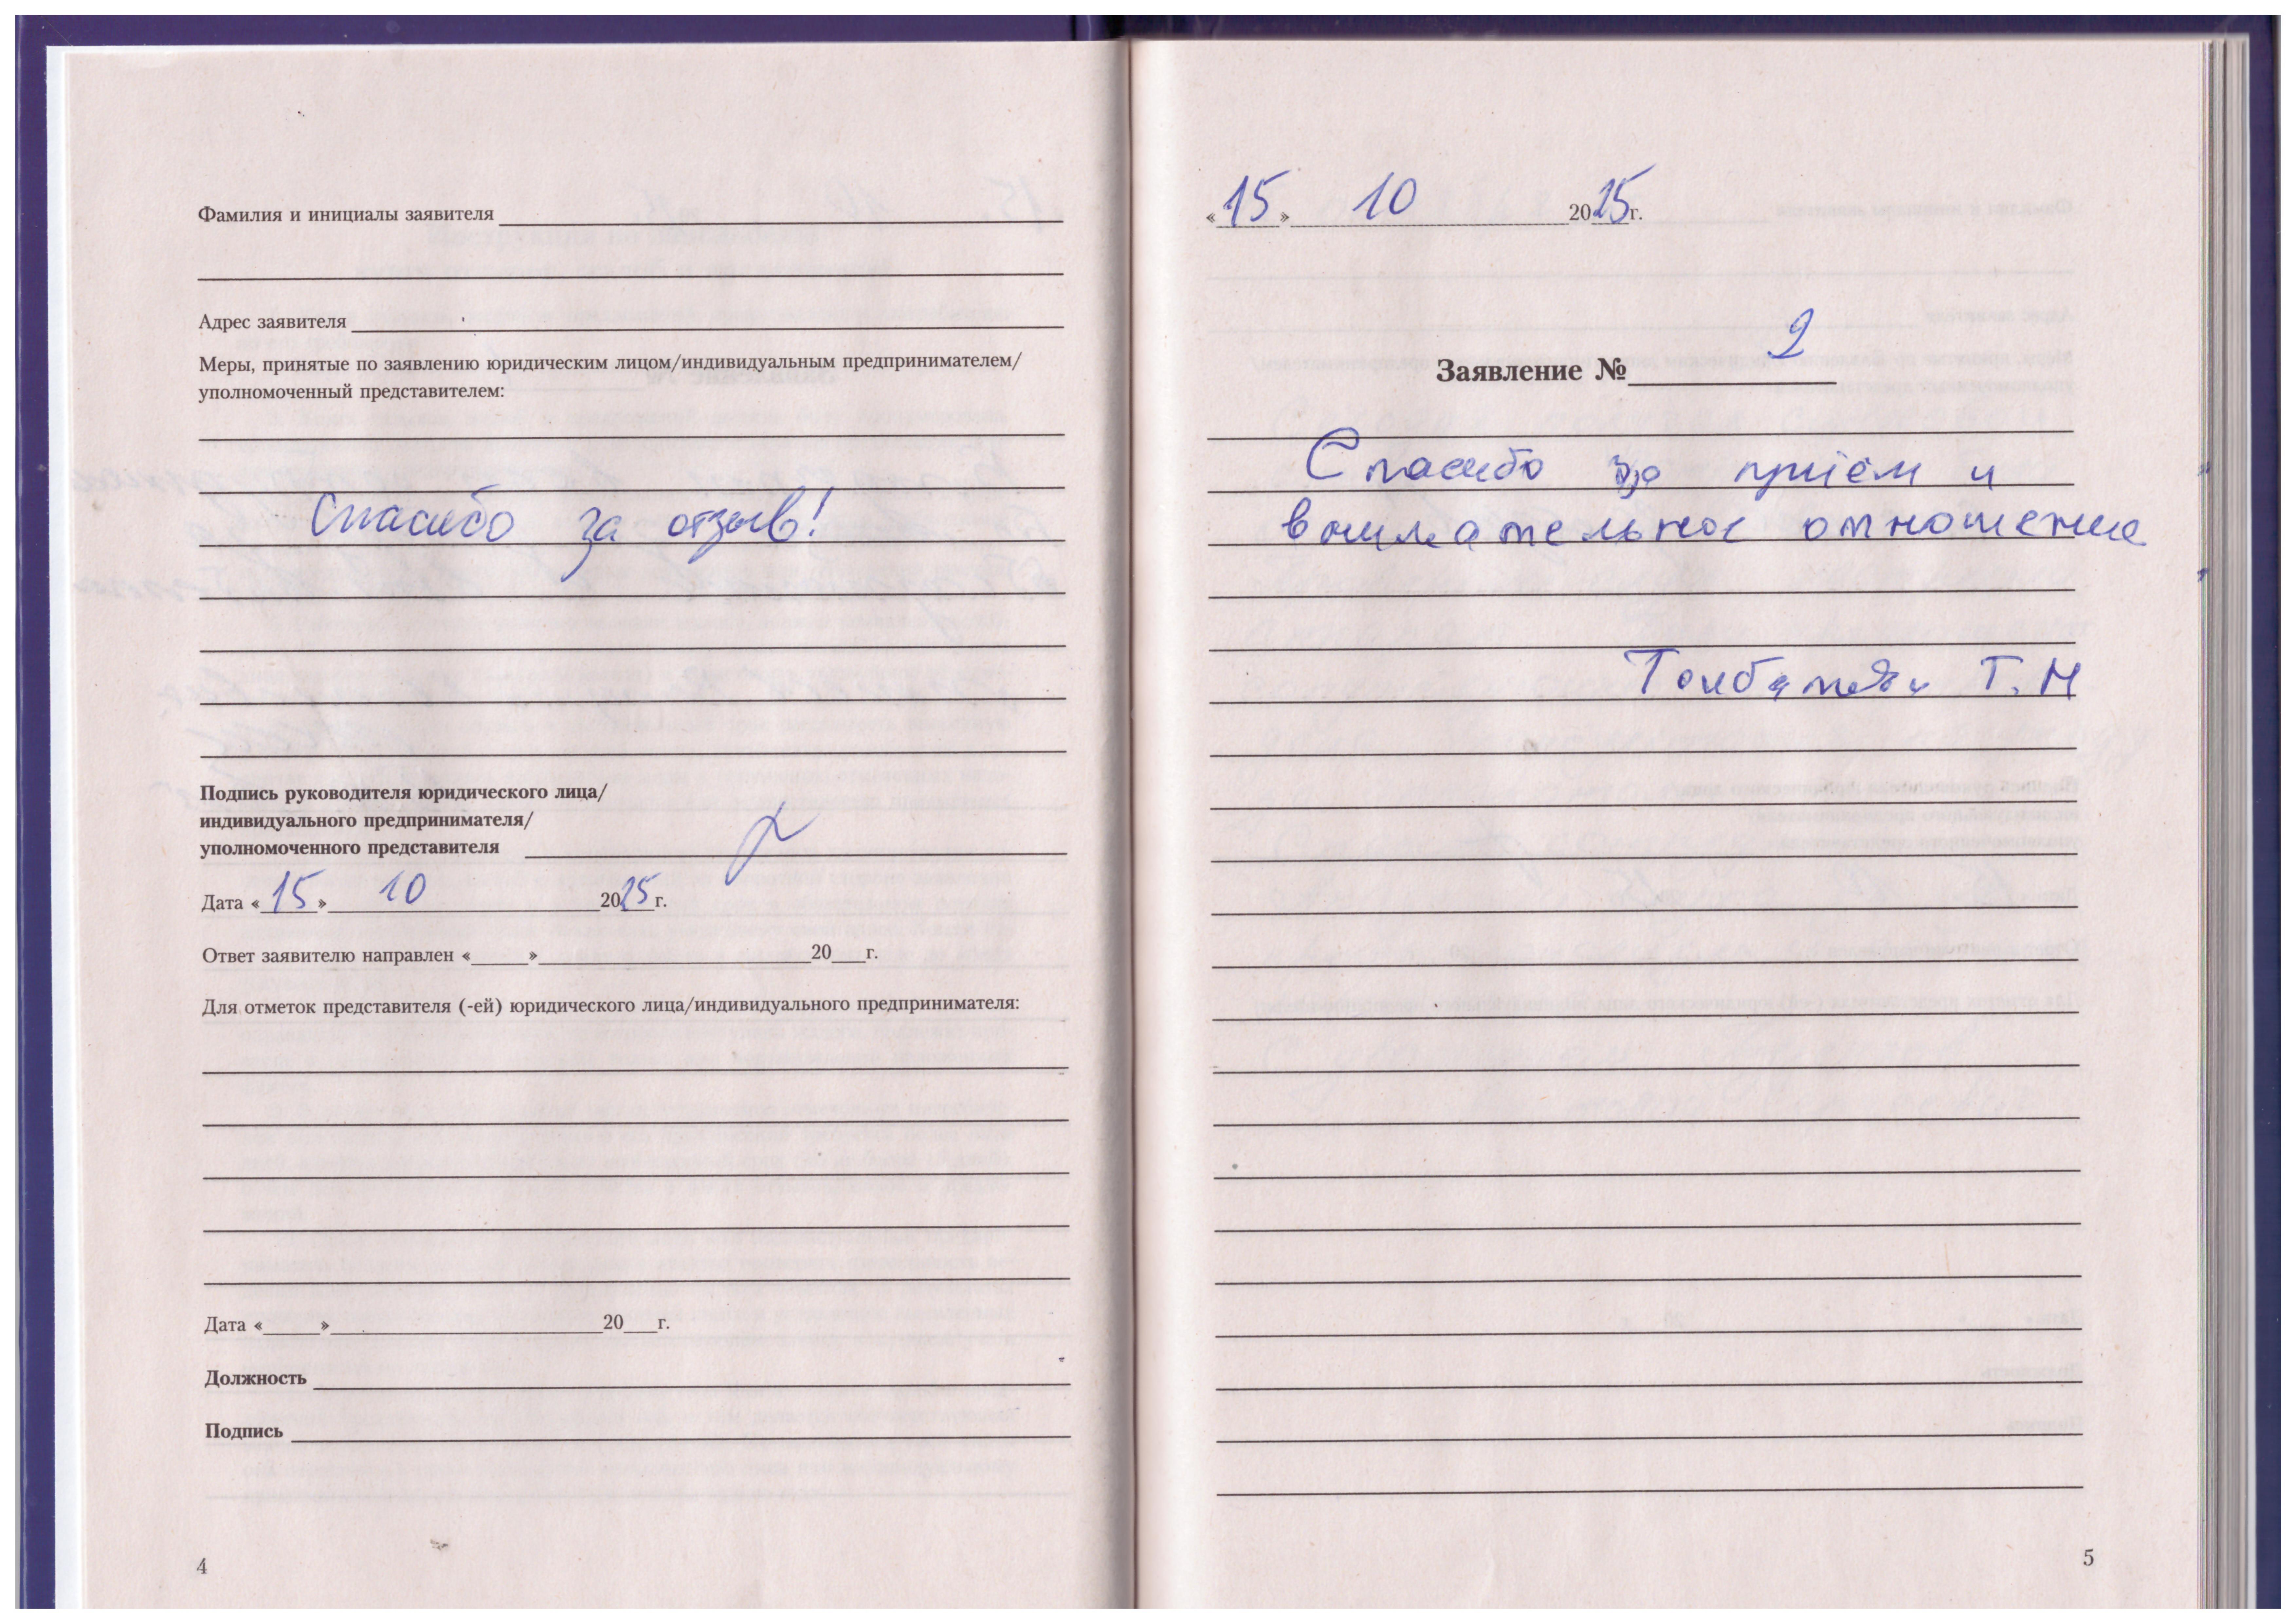 Фамилия и инициалы заявителя
Адрес заявителя
Меры, принятые по заявлению юридическим лицом/индивидуальным предпринимателем/
уполномоченный представителем:
Спасибо за отзыв!
Подпись руководителя юридического лица/
индивидуального предпринимателя/
уполномоченного представителя
Дата «15» 10 2025г.
Ответ заявителю направлен «___»___20___г.
Для отметок представителя (-ей) юридического лица/индивидуального предпринимателя:
Дата «___»___20___г.
Должность
Подпись
4
«15» 10 2025г.
Заявление № 2
Спасибо за приём и
внимательное отношение
Т.Н
5